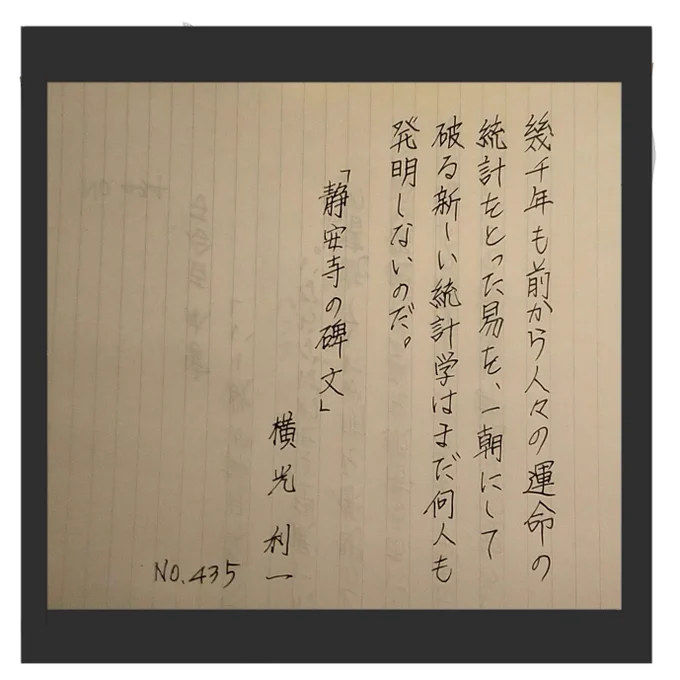 幾千年も前から人々の運命の
統計をとった易を、一朝にして
破る新しい統計学はまだ何人も
発明しないのだ。
「静安寺の碑文」
横光利一
NO.435